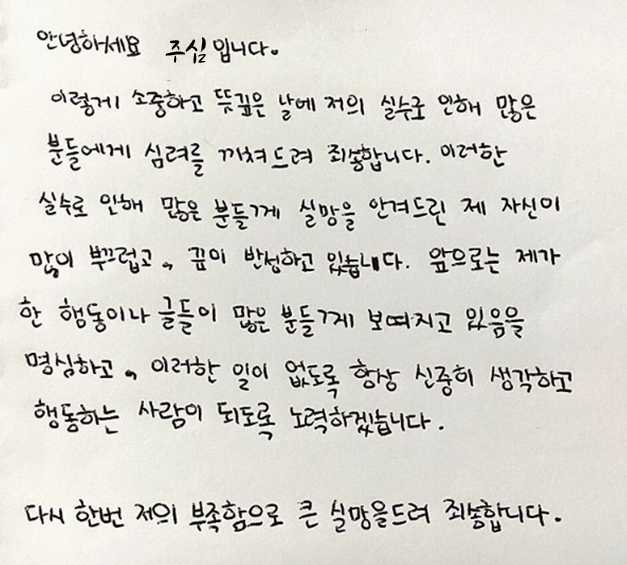 안녕하세요 주심입니다.
이렇게 소중하고 뜻깊은 날에 저의 실수로 인해 많은
분들에게 심려를 끼쳐드려 죄송합니다. 이러한
실수로 인해 많은 분들께 실망을 안겨드린 제 자신이
많이 부끄럽고, 깊이 반성하고 있습니다. 앞으로는 제가
한 행동이나 글들이 많은 분들께 보여지고 있음을
명심하고, 이러한 일이 없도록 항상 신중히 생각하고
행동하는 사람이 되도록 노력하겠습니다.
다시 한번 저의 부족함으로 큰 실망을드려 죄송합니다.